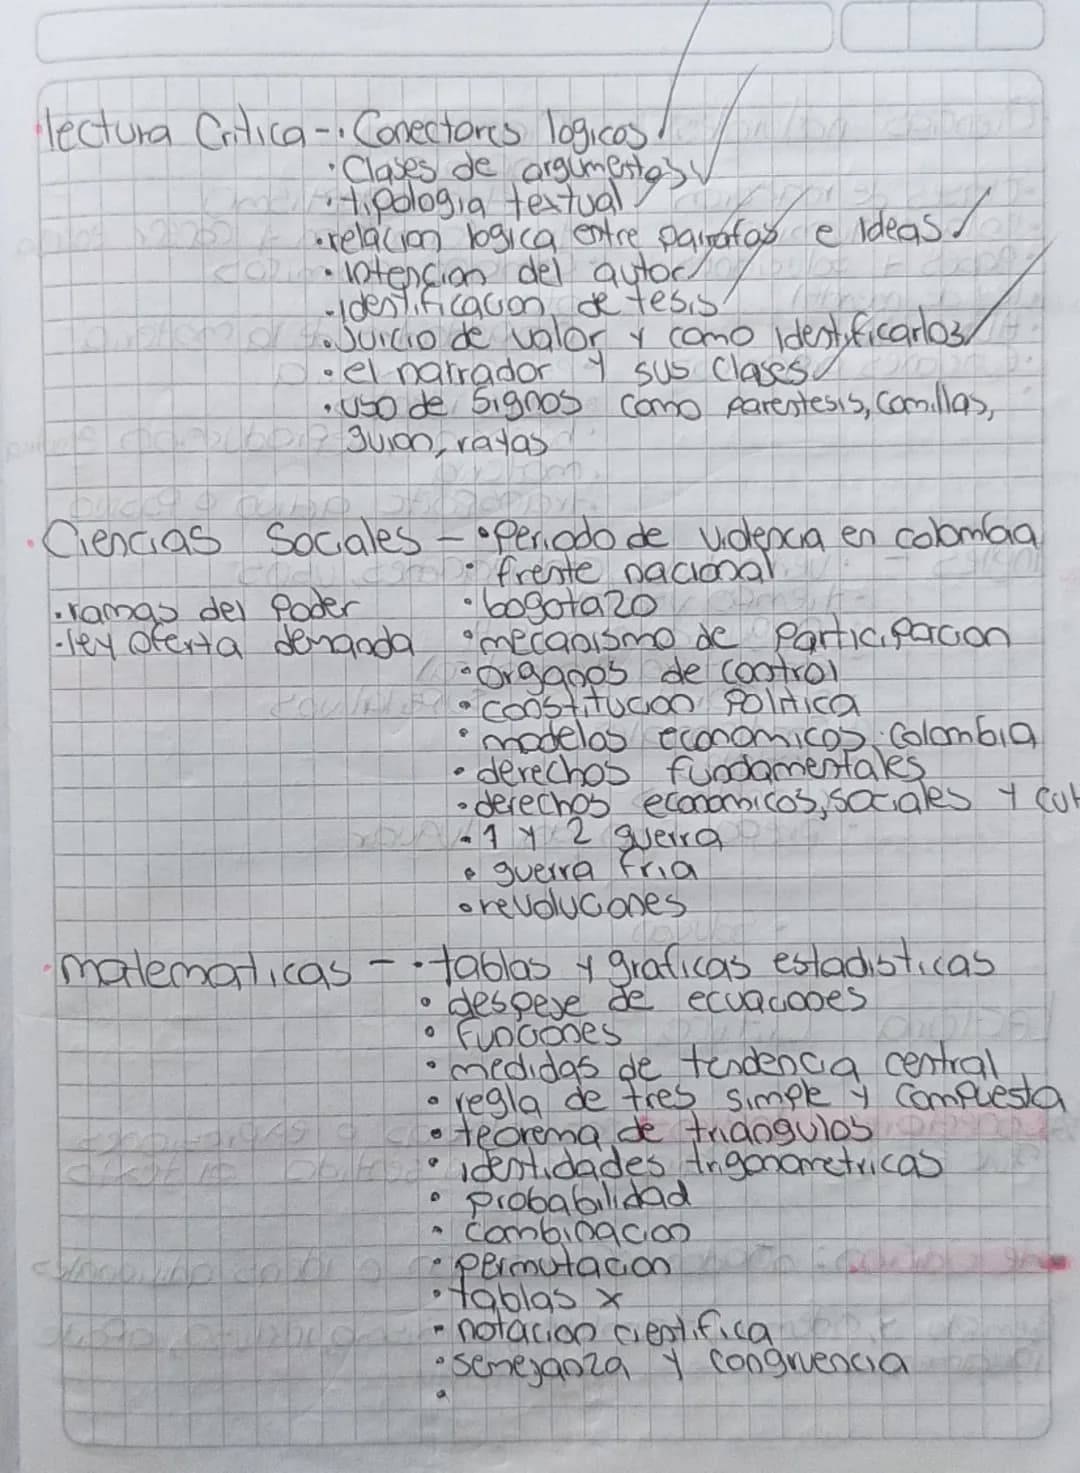 lectura Critica - · Conectores logicos
· Clases de argumentos
· tipologia textual
· relacion logica entre parrafos e ideas
· intencion del autor
· identificacion de tesis
· Juicio de valor y como identificarlos
· el narrador y sus clases
· uso de signos como parentesis, comillas,
guion, rayas
· Ciencias Sociales - · Periodo de violencia en colombia
· frente nacional
· ramas del poder · bogotazo
· ley oferta demanda · mecanismo de participacion
· organos de control
· constitucion Politica
· modelos economicos Colombia
· derechos fundamentales
· derechos economicos, sociales y cult
· 1 y 2 guerra
· guerra fria
· revoluciones
· matematicas - · tablas y graficas estadisticas
· despeje de ecuaciones
· funciones
· medidas de tendencia central
· regla de tres simple y compuesta
· teorema de triangulos
· identidades trigonometricas
· probabilidad
· combinacion
· permutacion
· tablas x
· notacion cientifica
· semejanza y congruencia
·